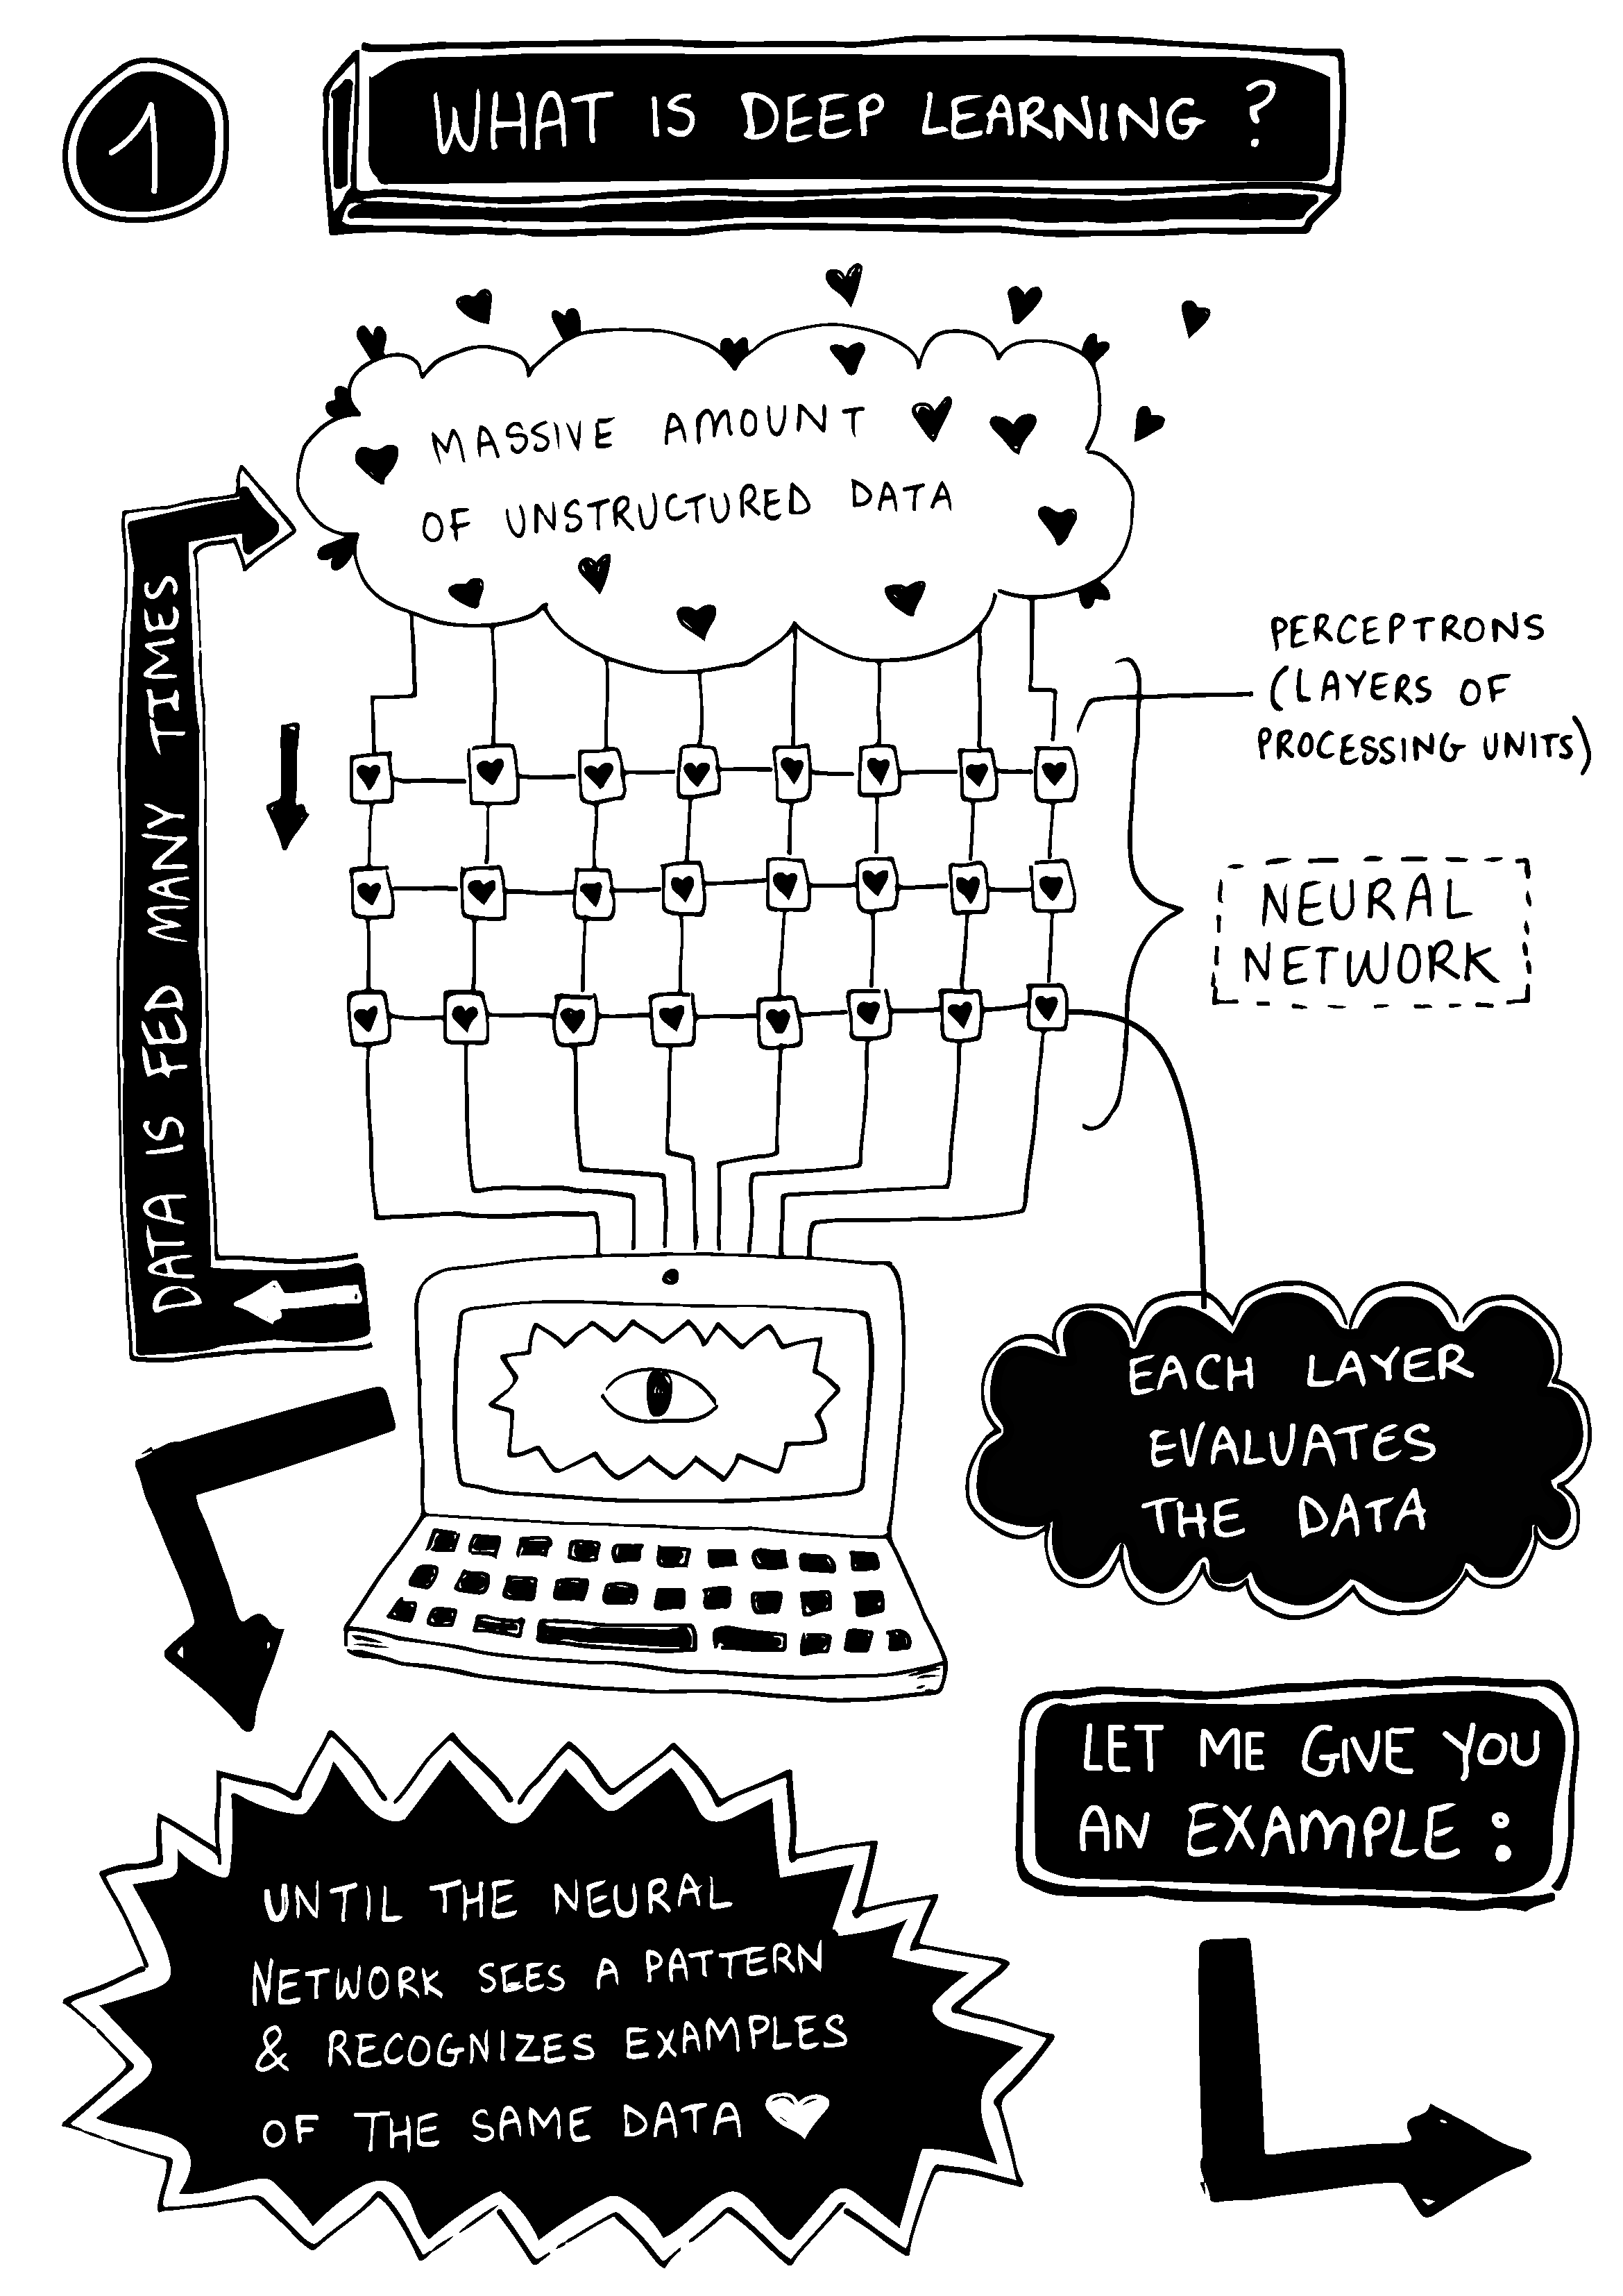 1
WHAT IS DEEP LEARNING ?
MASSIVE AMOUNT
OF UNSTRUCTURED DATA
DATA IS FED MANY TIMES
PERCEPTRONS
(LAYERS OF
PROCESSING UNITS)
NEURAL
NETWORK
EACH LAYER
EVALUATES
THE DATA
LET ME GIVE YOU
AN EXAMPLE :
UNTIL THE NEURAL
NETWORK SEES A PATTERN
& RECOGNIZES EXAMPLES
OF THE SAME DATA